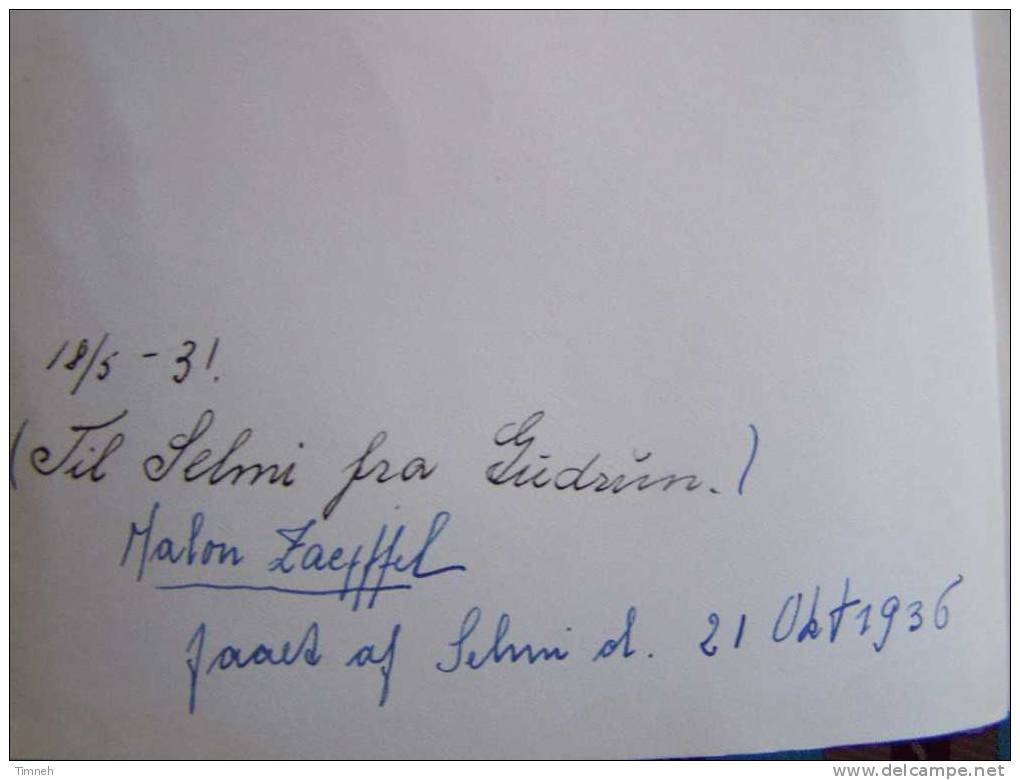 18/5 - 31.
(Til Selmi fra Gudrun.)
Malon Zaepffel
faaet af Selmi d. 21 Okt 1936
Timneh
www.delcampe.net